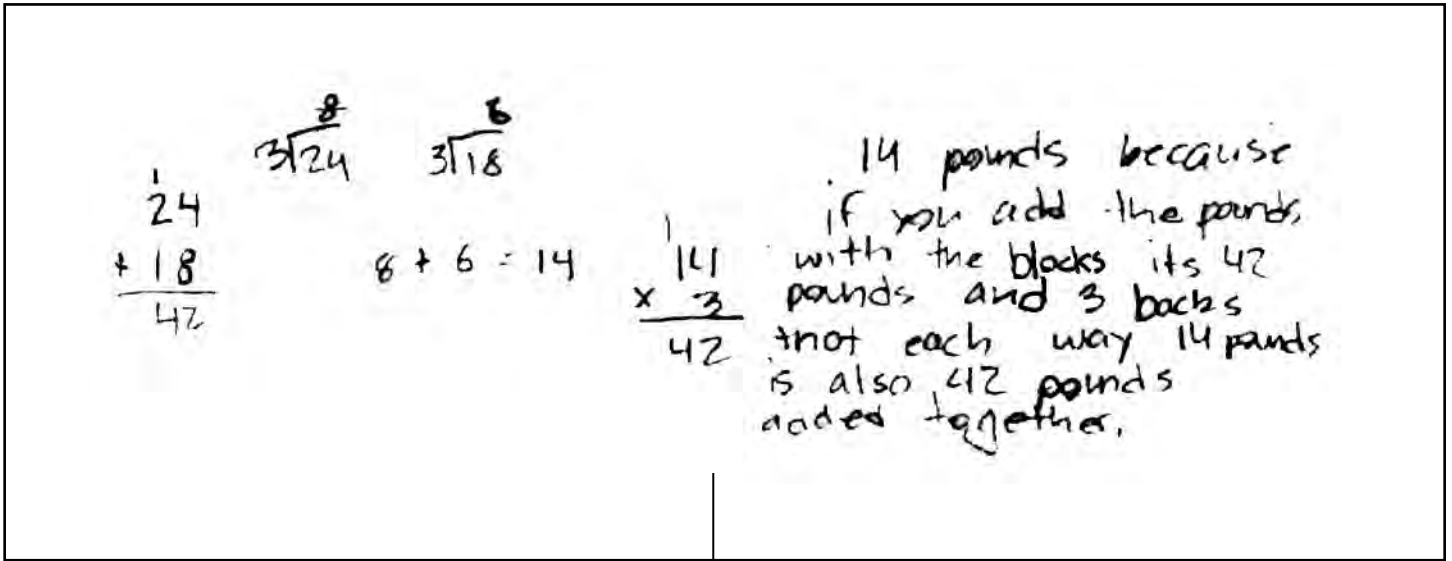 8
3√24
6
3√18
1
24
+ 18
42
8 + 6 = 14
1
14
x 3
42
14 pounds because
if you add the pounds
with the blocks its 42
pounds and 3 backs
that each way 14 pounds
is also 42 pounds
added together.